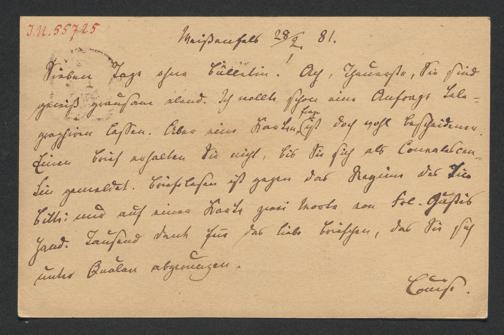 I.N. 55725
Weißenfels 28/2. 81.
Sieben Tage ohne Bülletin! Ach, Theuerste, Sie sind
gewiß grausam elend. Ich wollte schon eine Anfrage tele-
graphiren lassen. Aber eine Karten frage ist doch wohl bescheidener.
Einen Brief erhalten Sie nicht, bis Sie sich als Convalescen-
tin gemeldet. Brieflesen ist gegen das Regime des
Bitte nur auf einer Karte zwei Worte von Frl.
Hand. Tausend Dank für das liebe Briefchen, das Sie sich
unter Qualen abgerungen.
Louise.